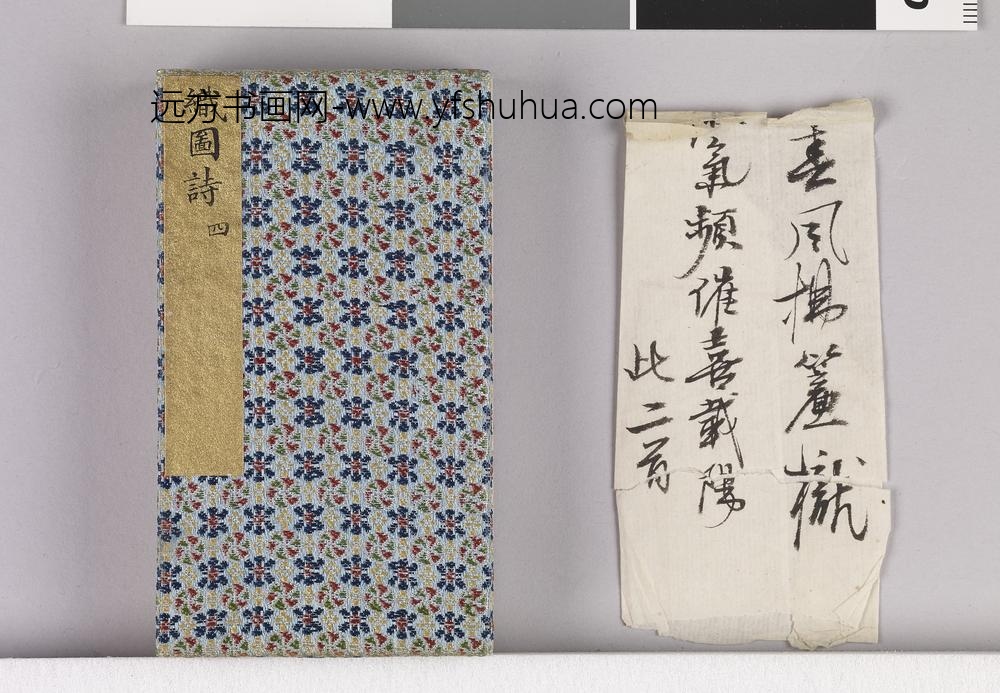 远方书画网-www.yfshuhua.com
圖詩
四
春風楊簾
氣頻催喜載陽
此二首